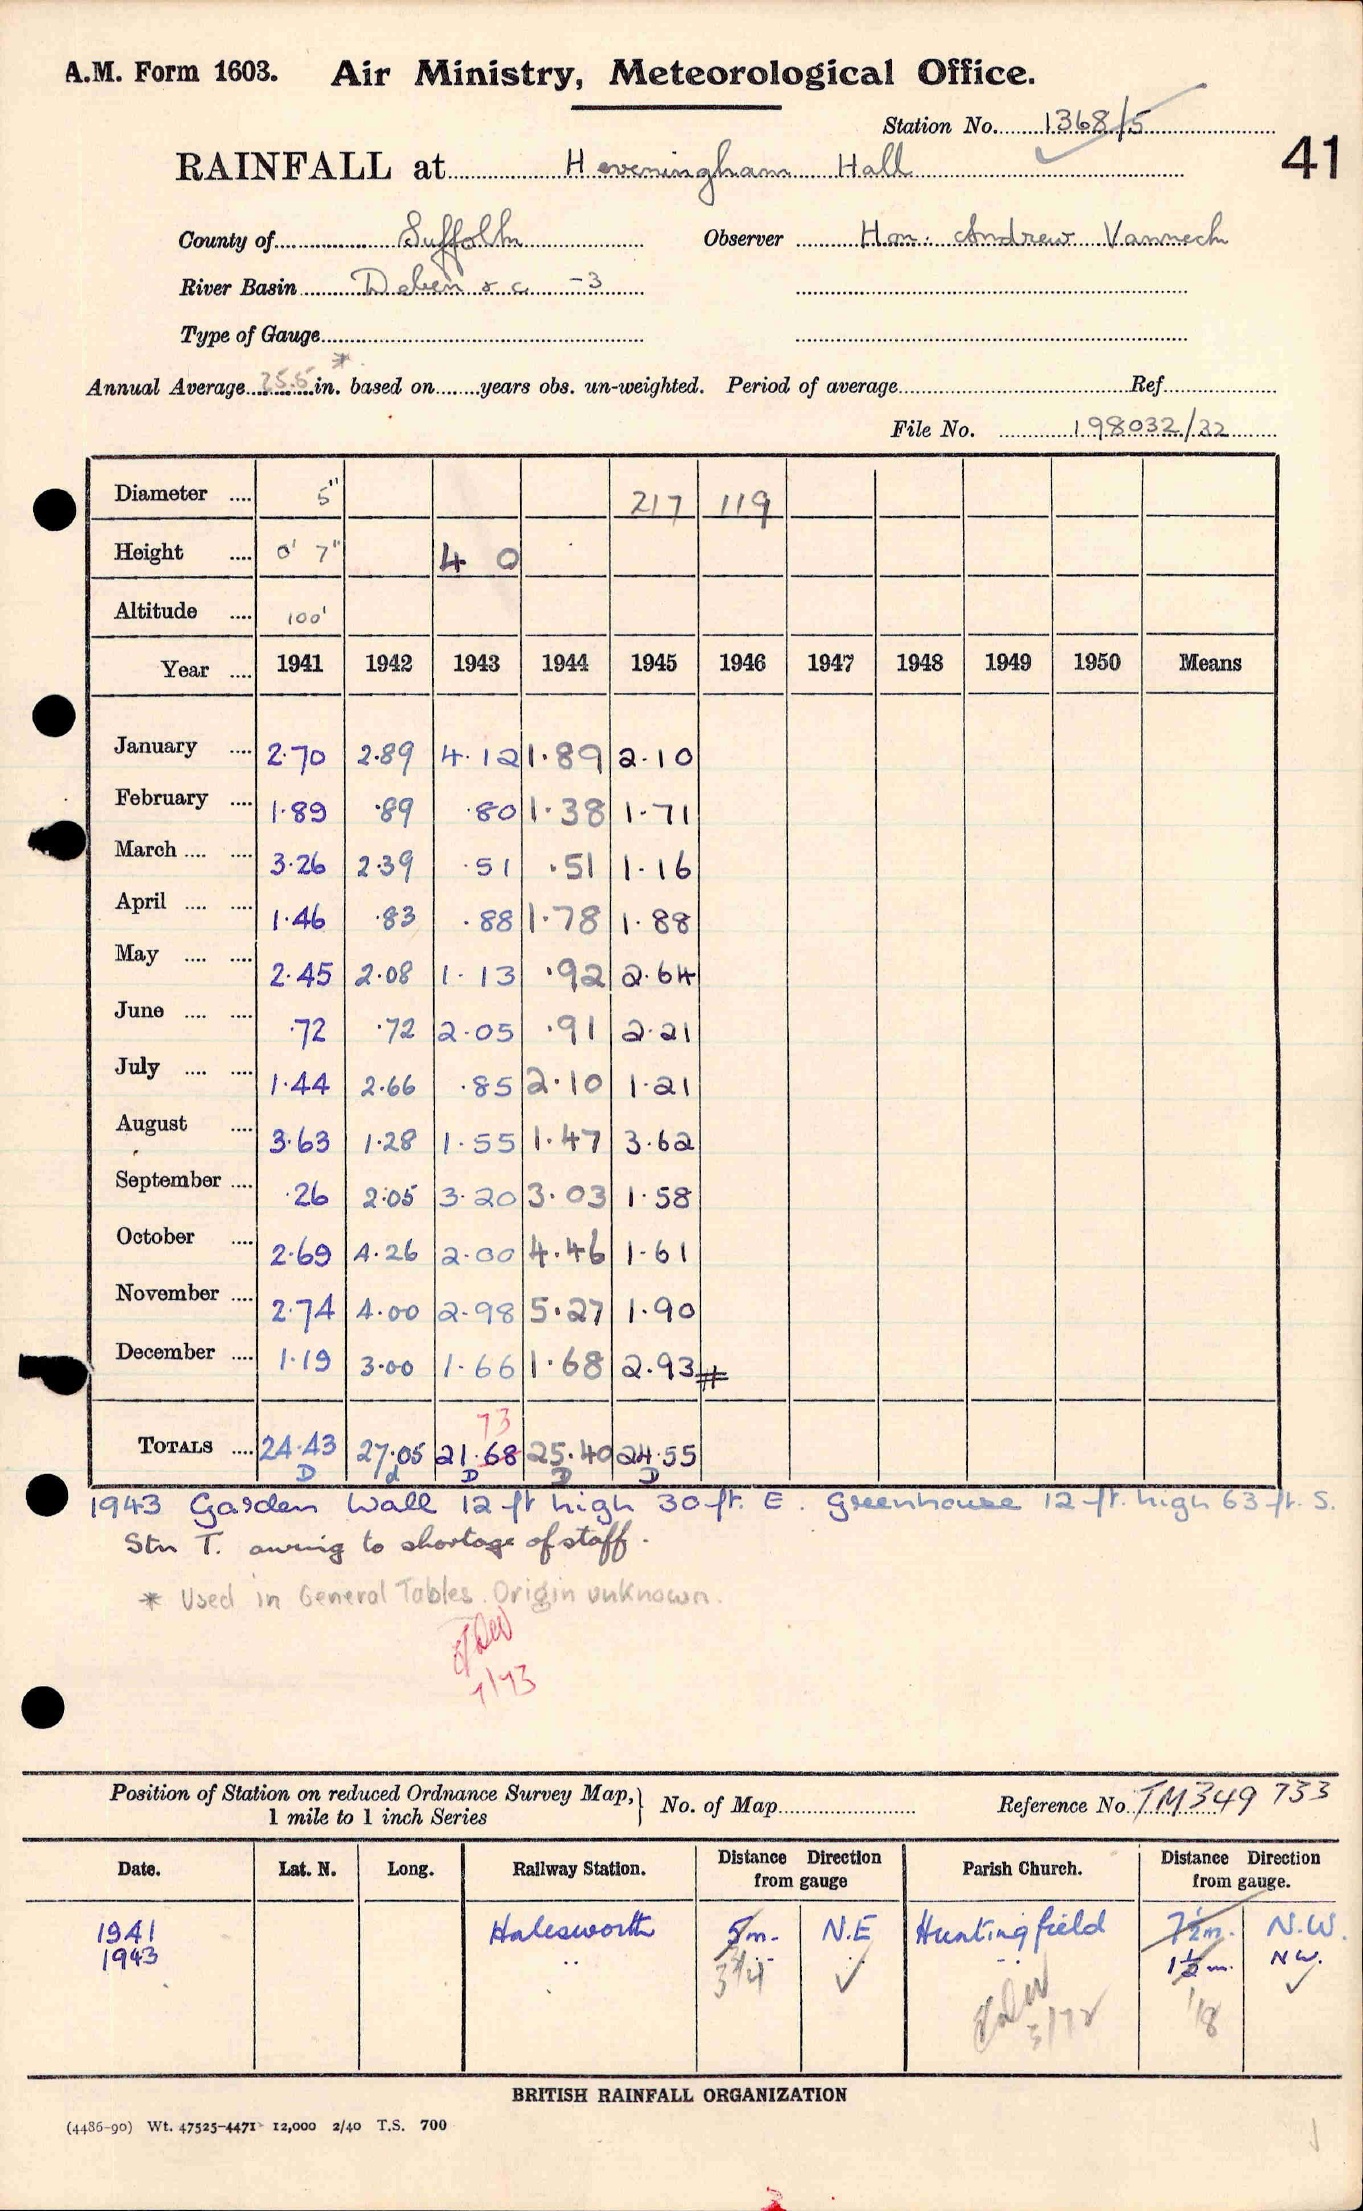 A.M. Form 1603. Air Ministry, Meteorological Office.
Station No. 1368/5
41
RAINFALL at Heveningham Hall
County of Suffolk Observer Hon. Andrew Vanneck
River Basin Deben & c -3
Type of Gauge
Annual Average 25.5 * in. based on years obs. un-weighted. Period of average Ref.
File No. 198032/32
Diameter .... 5" 217 119
Height .... 0' 7" 4 0
Altitude .... 100'
Year .... 1941 1942 1943 1944 1945 1946 1947 1948 1949 1950 Means
January .... 2·70 2·89 4·12 1·89 2·10
February .... 1·89 ·89 ·80 1·38 1·71
March .... .... 3·26 2·39 ·51 ·51 1·16
April .... .... 1·46 ·83 ·88 1·78 1·88
May .... .... 2·45 2·08 1·13 ·92 2·64
June .... .... ·72 ·72 2·05 ·91 2·21
July .... .... 1·44 2·66 ·85 2·10 1·21
August .... 3·63 1·28 1·55 1·47 3·62
September .... ·26 2·05 3·20 3·03 1·58
October .... 2·69 4·26 2·00 4·46 1·61
November .... 2·74 4·00 2·98 5·27 1·90
December .... 1·19 3·00 1·66 1·68 2·93 #
73
TOTALS .... 24·43 27·05 21·68 25·40 24·55
D d D D D
1943 Garden Wall 12 ft high 30 ft. E. Greenhouse 12 ft. high 63 ft. S.
Stn T. owing to shortage of staff.
* Used in General Tables. Origin unknown.
7/73
Position of Station on reduced Ordnance Survey Map, } No. of Map Reference No. TM349 733
1 mile to 1 inch Series
Date. Lat. N. Long. Railway Station. Distance Direction from gauge Parish Church. Distance Direction from gauge.
1941 Halesworth 5m. N.E Huntingfield 7½m. N.W.
1943 .. 3¾ .. .. 1½m. NW.
3/72 1/8
BRITISH RAINFALL ORGANIZATION
(4486-90) Wt. 47525-4471 12,000 2/40 T.S. 700